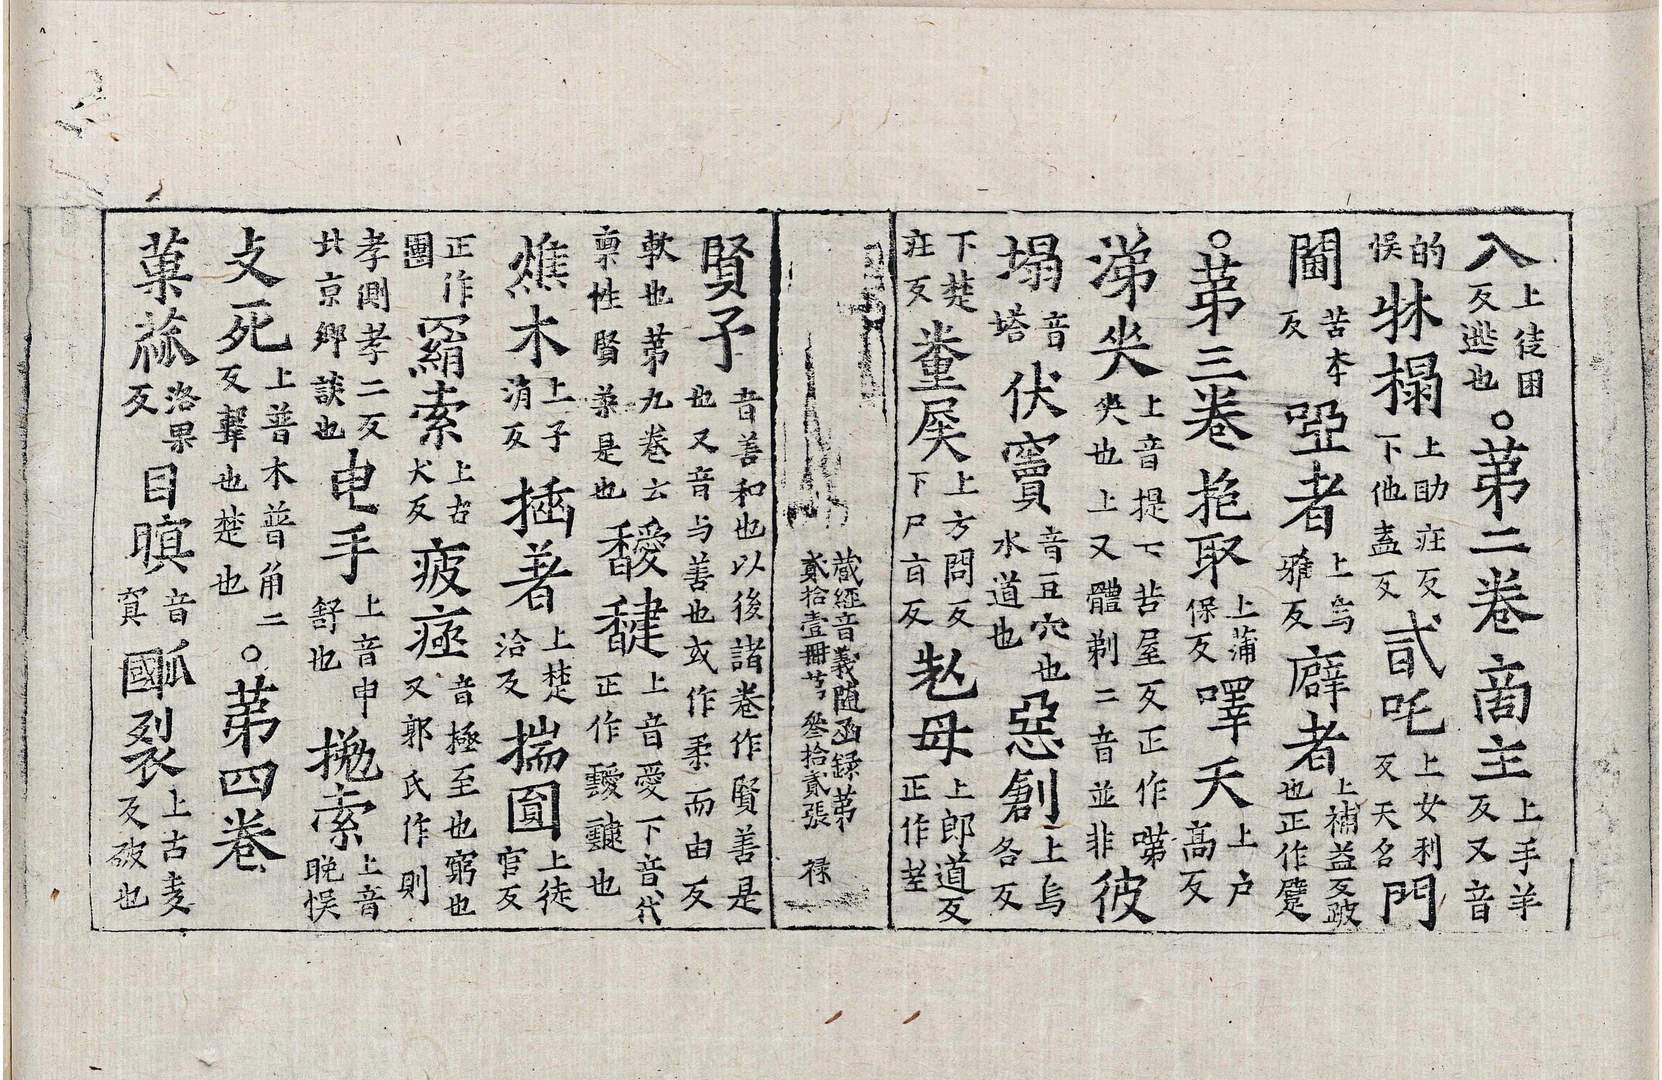 入上徒困反逃也○第二卷商主上手羊反又音
的悮牀榻上助疘反下他盍反貳吒上女利反天名門
閫苦本反啞者上烏雅反癖者上補益反跛也正作躄
○第三卷抱取上蒲保反嘷天上户高反
涕哭上音提下苦屋反正作㖷哭也上又體剃二音並非彼
塌音塔伏竇音豆穴也水道也惡創上烏各反
下楚疘反糞屎上方問反下尸旨反母上郎道反正作
藏經音義随函録第貳拾壹冊第叁拾貳張 禄
賢子音善和也以後諸卷作賢善是也又音与善也或作柔而由反
軟也第九卷云稟性賢柔是也上音愛下音代正作靉靆也
燋木上子消反插著上楚洽反揣圓上徒官反
正作團羂索上古犬反疲極音極至也窮也又郭氏作則
孝側孝二反北京鄉談也申手上音申舒也索上音晚悮
攴死上普木普角二反擊也楚也○第四卷
菓蓏洛果反目瞑音㝠裂上古麦反破也